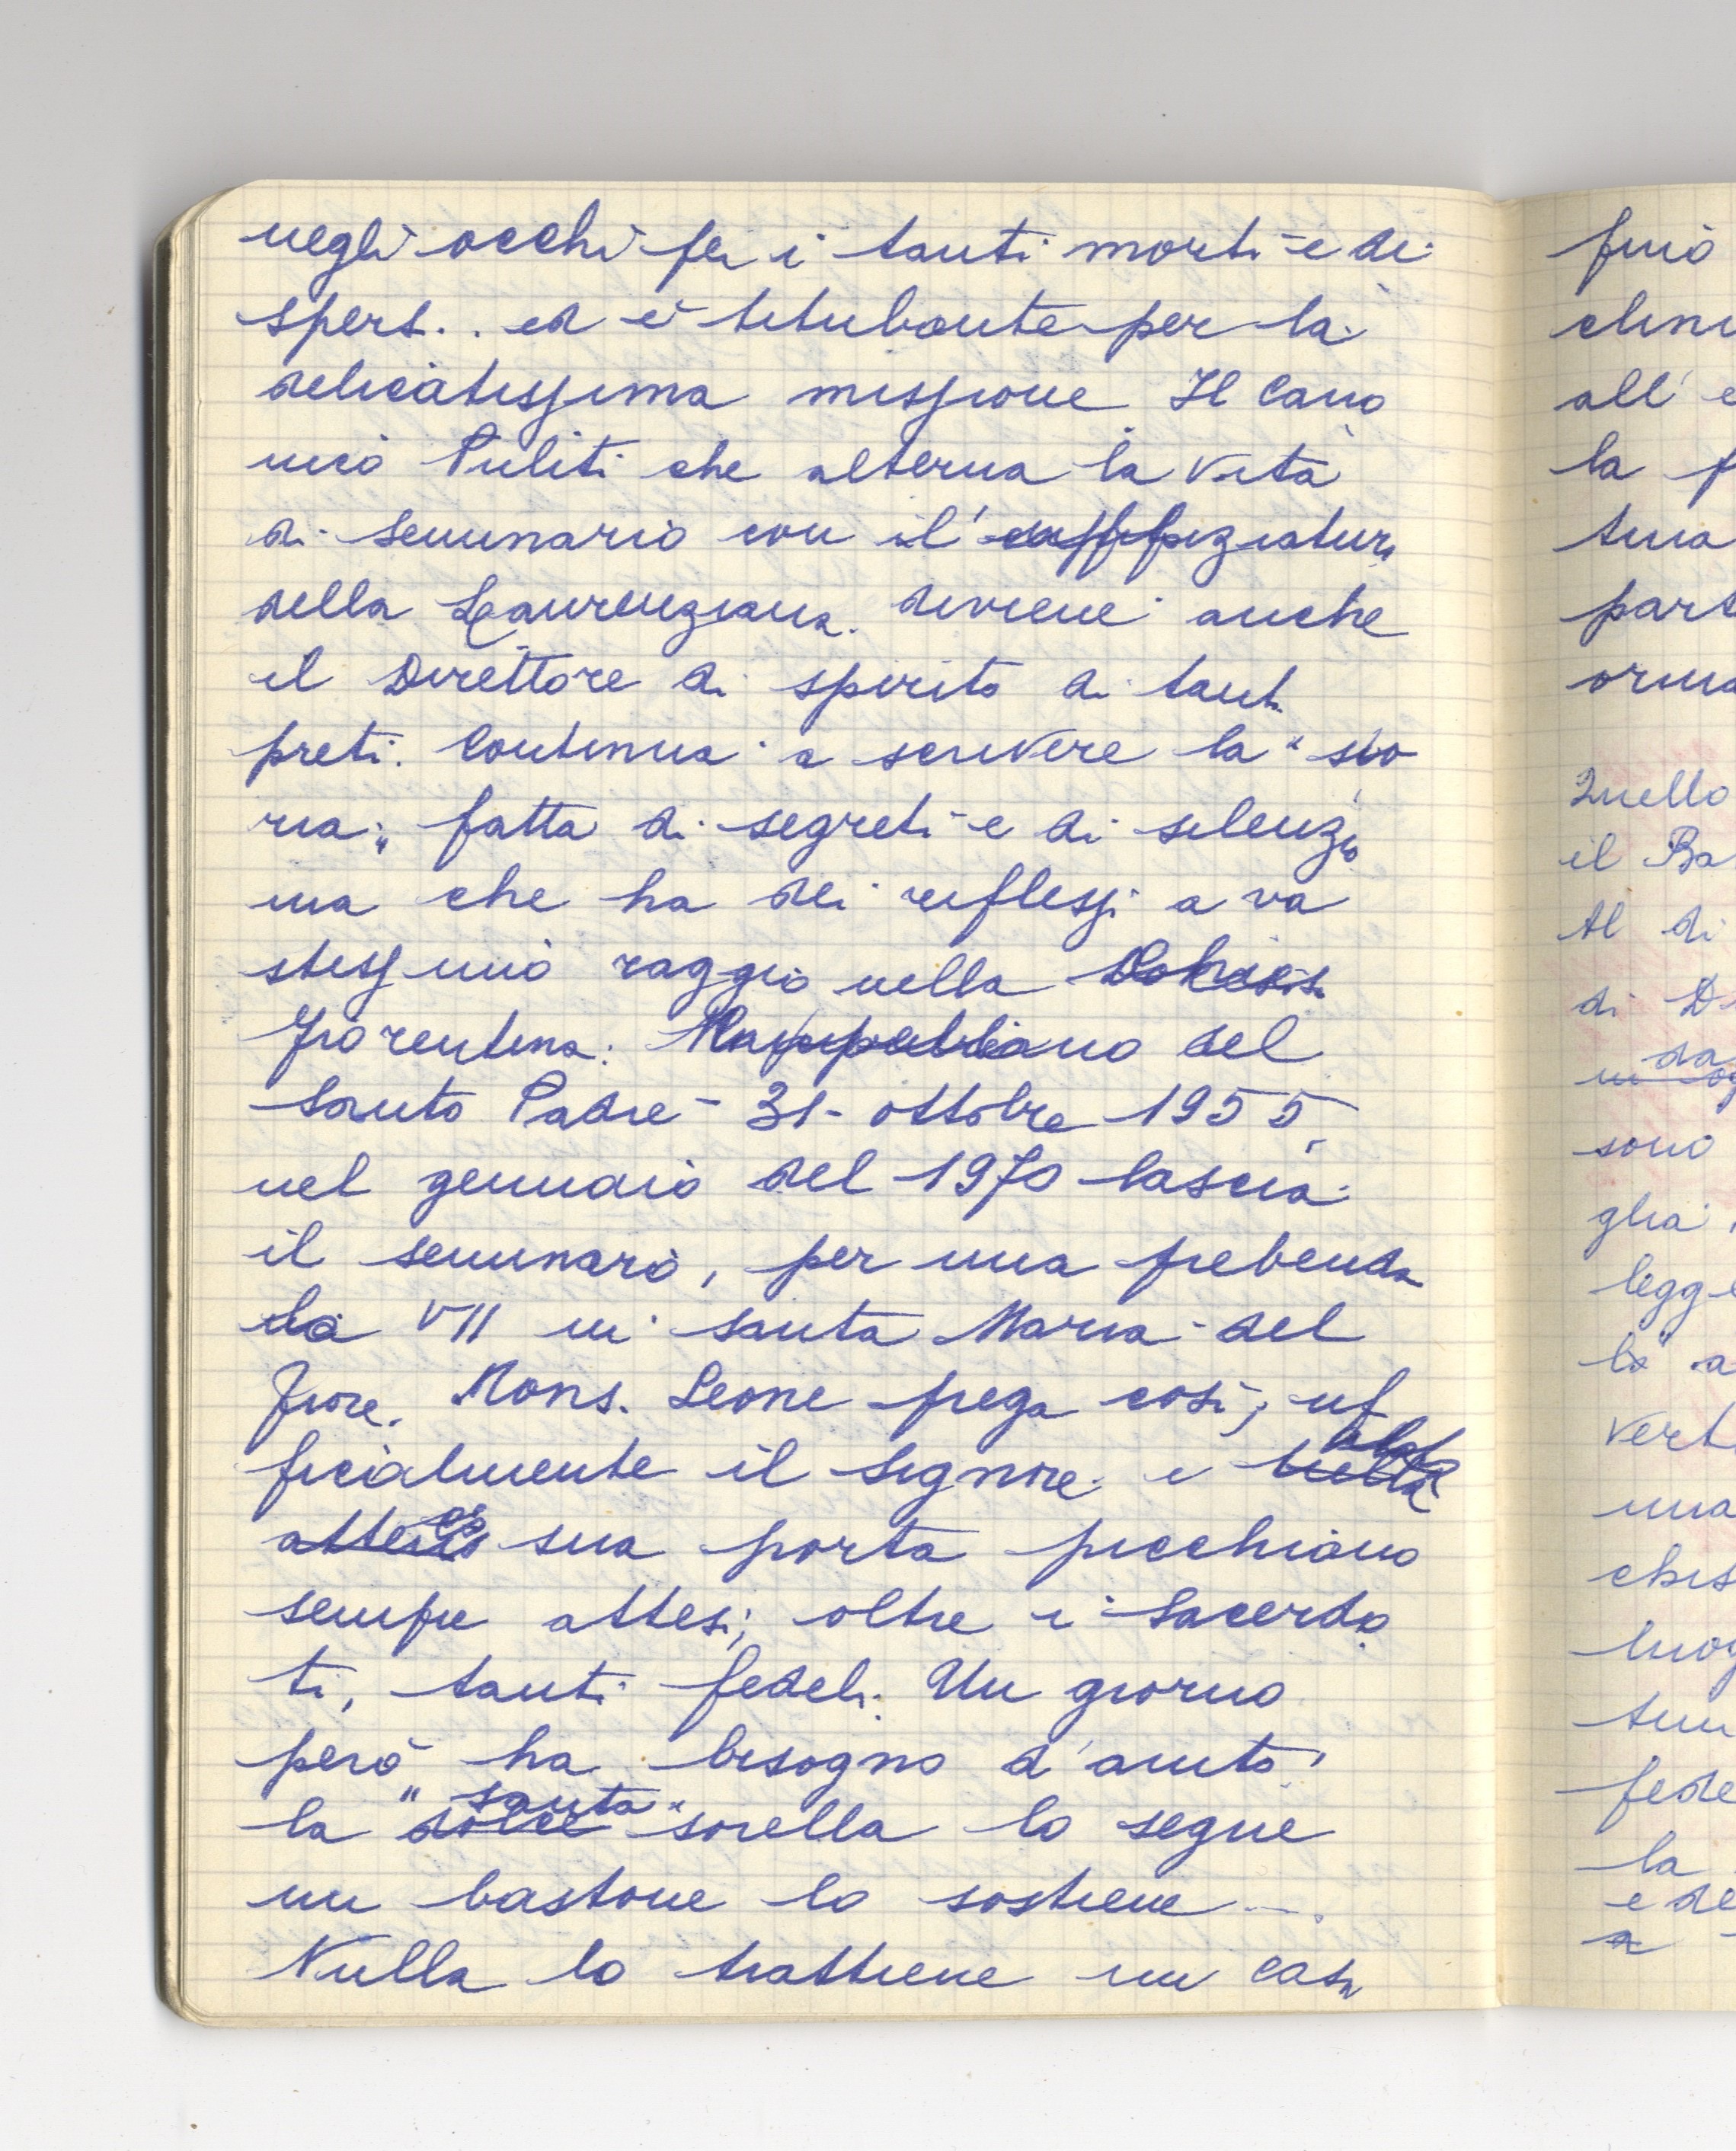 negli occhi per i tanti morti e di
spersi.. ed è titubante per la
delicatissima missione Il Cano
nico Puliti che alterna la vita
di seminario con il
della Laurenziana. diviene anche
il Direttore di spirito di tanti
preti. Continua a scrivere la "sto
ria„ fatta di segreti e di silenzio
ma che ha dei riflessi a va
stissimo raggio nella
Fiorentina. del
Santo Padre - 31 - ottobre 1955,
nel gennaio del 1970 lascia
il seminario, per una prebenda
la VII in santa Maria del
Fiore. Mons. Leone prega così, uf
ficialmente il Signore e alla
sua porta picchiano
sempre attesi, oltre i Sacerdo
ti, tanti fedeli. Un giorno
però ha bisogno d'aiuto:
"santa"
la dolce sorella lo segue
un bastone lo sostiene ...
Nulla lo trattiene in casa
finò
clini
all' e
la p
tina
part
orma
Quello
il Ba
Al di
di D
da
in og
sono
glia
legge
lo a
vert
una
chis
luog
tun
fede
la
e de
a